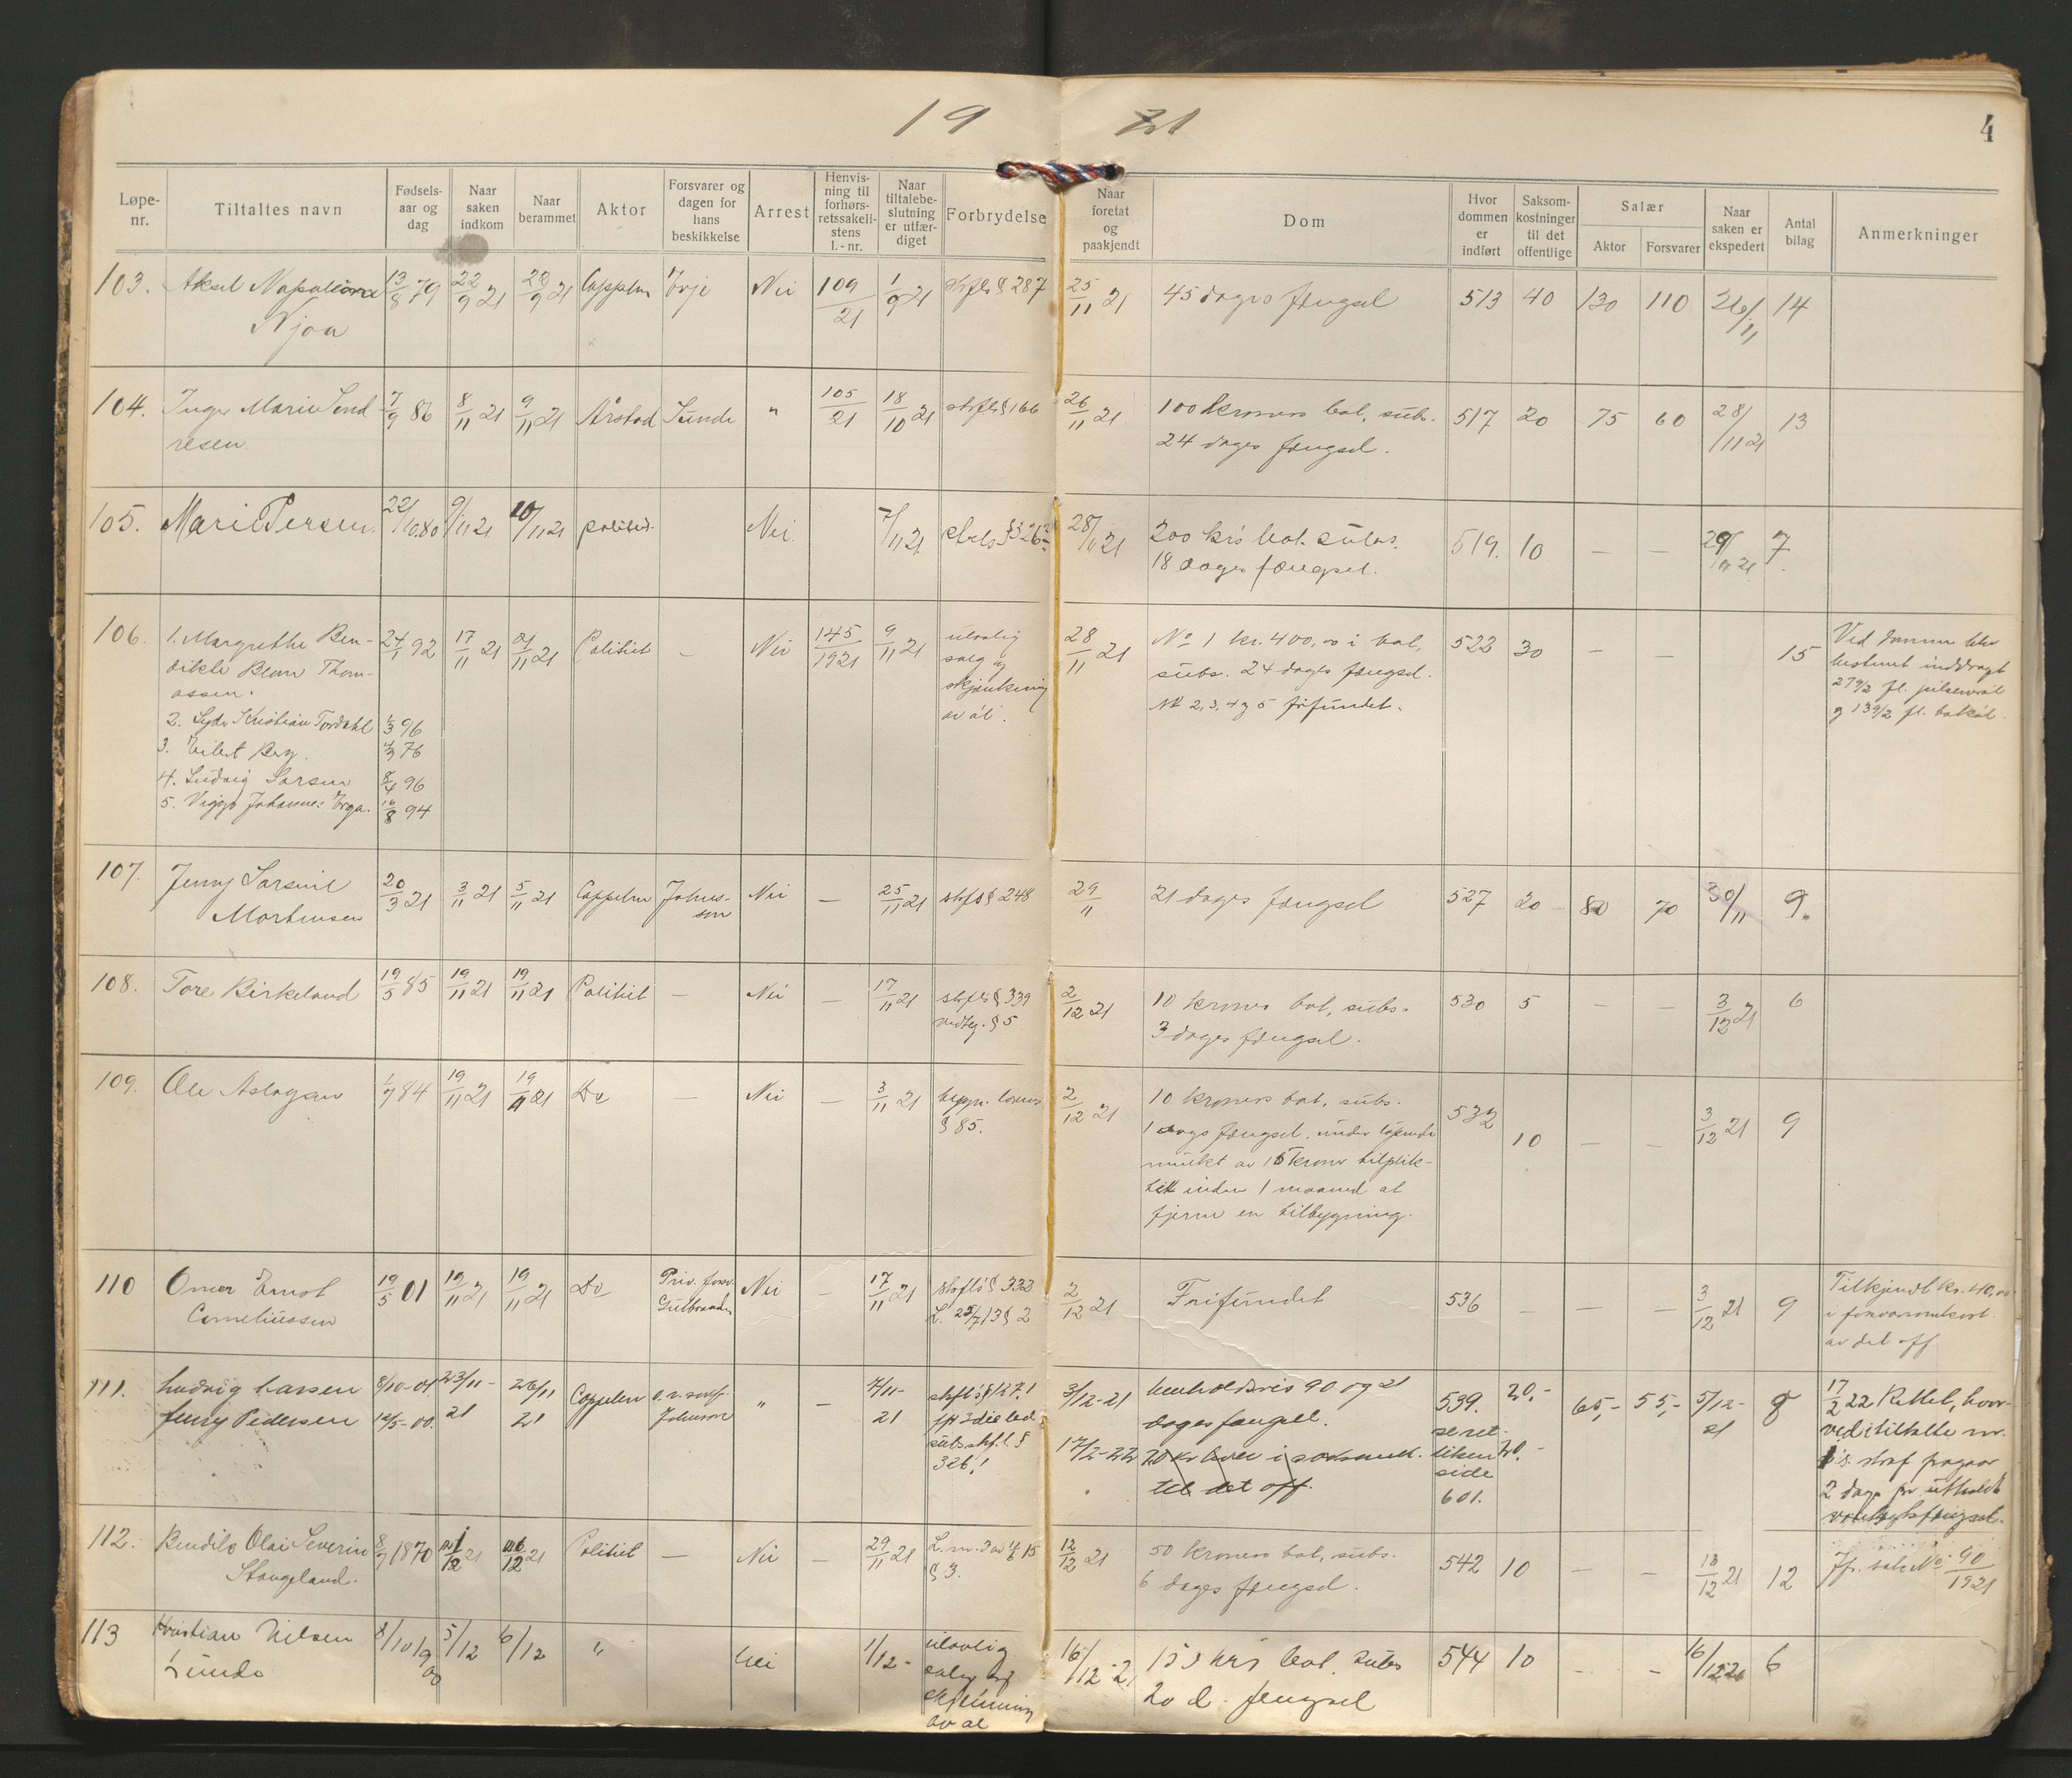 19 21
4
Løpe-nr.
Tiltaltes navn
Fødsels-aar og dag
Naar saken indkom
Naar berammet
Aktor
Forsvarer og dagen for hans beskikkelse
Arrest
Henvisning til forhørsretssakelistens l.-nr.
Naar tiltalebeslutning er utfærdiget
Forbrydelse
Naar foretat og paakjendt
Dom
Hvor dommen er indført
Saksomkostninger til det offentlige
Salær
Aktor
Forsvarer
Naar saken er ekspedert
Antal bilag
Anmerkninger
103. Aksel Napoleon 13/8 79 22/9 21 22/9 21 Cappelen Nei 109/21 1/9 21 strfls § 287 25/11 21 45 dages fængsel 513 40 130 110 26/11 14
Njaa
104. Inger Marie Send 7/9 86 8/11 21 9/11 21 Årstad Sunde " 105/21 18/10 21 strfls § 166 26/11 21 100 kroners bot, subs. 517 20 75 60 28/11 21 13
resen. 24 dages fængsel.
105. Marie Persen. 22/10 80 9/11 21 10/11 21 politiet Nei 7/11 21 28/11 21 200 kr's bot. subs. 519. 10 — — 29/11 21 7
18 dages fængsel.
106. 1. Margrethe Ben- 24/1 92 17/11 21 21/11 21 Politiet — Nei 145/1921 9/11 21 ulovlig 28/11 21 No 1 kr. 400,00 i bot, 522 30 — — 15
dikte Benn Thom- salg og subs. 24 dages fængsel.
assen. skjænkning Nr 2, 3, 4 og 5 frifundet.
av øl.
2. Syder Kristian Tordahl 96
3. Eilert Berg. 76
4. Ludvig Larsen 96
5. Viggo Johannes Erga. 16/8 94
107. Jenny Larsine 20/3 21 3/11 21 5/11 21 Cappelen Johnsen Nei — 25/11 21 strfls § 248 29/11 21 dages fængsel 527 20 80 70 30/11 9.
Mortensen
108. Tore Birkeland 19/5 85 19/11 21 19/11 21 Politiet — Nei — 17/11 21 strfls § 339 2/12 21 10 kroners bot, subs. 530 5 — — 3/12 21 6
vedtg. § 5 3 dages fængsel.
109. Ole Aslagsen 1/7 84 19/11 21 19/11 21 Do — Nei — 3/11 21 bygn. lovens 2/12 21 10 kroners bot, subs. 532 10 — — 3/12 21 9
§ 85. 1 dags fængsel, under løpende
mulkt av 15 kroner tilplik-
tet inden 1 maaned at
fjerne en tilbygning.
110 Omar Ernst 19/5 01 19/11 21 19/11 21 Do Priv. forsv. Nei — 17/11 21 strfls § 332 2/12 21 Frifundet 536 — — — 3/12 21 9 Tilkjendt kr. 40,00
Corneliussen L. 25/7 13 § 2 i forsvarsomkost.
av det off.
111. Ludvig Larsen 8/10-01 23/11-21 26/11 21 Cappelen o.r. sakf. " — 7/11-21 3/12-21 henholdsvis 90 og 21 539. 20,- 65,- 55,- 5/12-21 8 17/2 22 Rettet, hvor-
Jenny Pedersen 12/5-00. Johnson dages fængsel. ved tiltalte nr.
subs. strf. l. § 326.1 17/2-22 20 kr hver i saksomk. til det off. side 601. 20.- 1's straf fragaar
2 dage for utholdt
varetægtsfængsel.
112. Bendiks Olai Severin 8/7 1870 1/12 21 12 21 Politiet — Nei — 29/11 21 § 3. 12/12 21 50 kroners bot, subs. 542 10 — — 13/12 21 12 Jfr. sak No 90/1921
Stangeland. 6 dages fængsel.
113 Kristian Nilsen 8/10 1900 5/12 6/12 " Nei 1/12- ulovlig 16/12-21 150 krs bot. subs 544 10 - - 16/12 6
Lunde salg og 20 d. fengsel
skjenkning
av øl